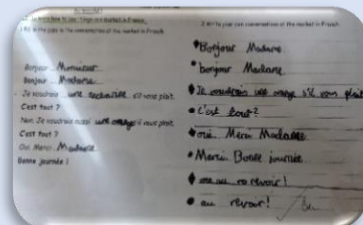 Au marché
1 Fill in the gaps in the conversation at the market in French.
Bonjour Monsieur
Bonjour Madame
Je voudrais une s'il vous plait.
C'est tout ?
Non. Je voudrais aussi une orange s'il vous plait.
C'est tout ?
Oui. Merci Madame
Bonne journée !
2 Write your own conversation at the market in French.
Bonjour Madame.
bonjour Madame
Je voudrais une orange s'il vous plait
C'est tout?
oui. Merci Madame
Merci Bonne journée
au revoir!
au revoir!